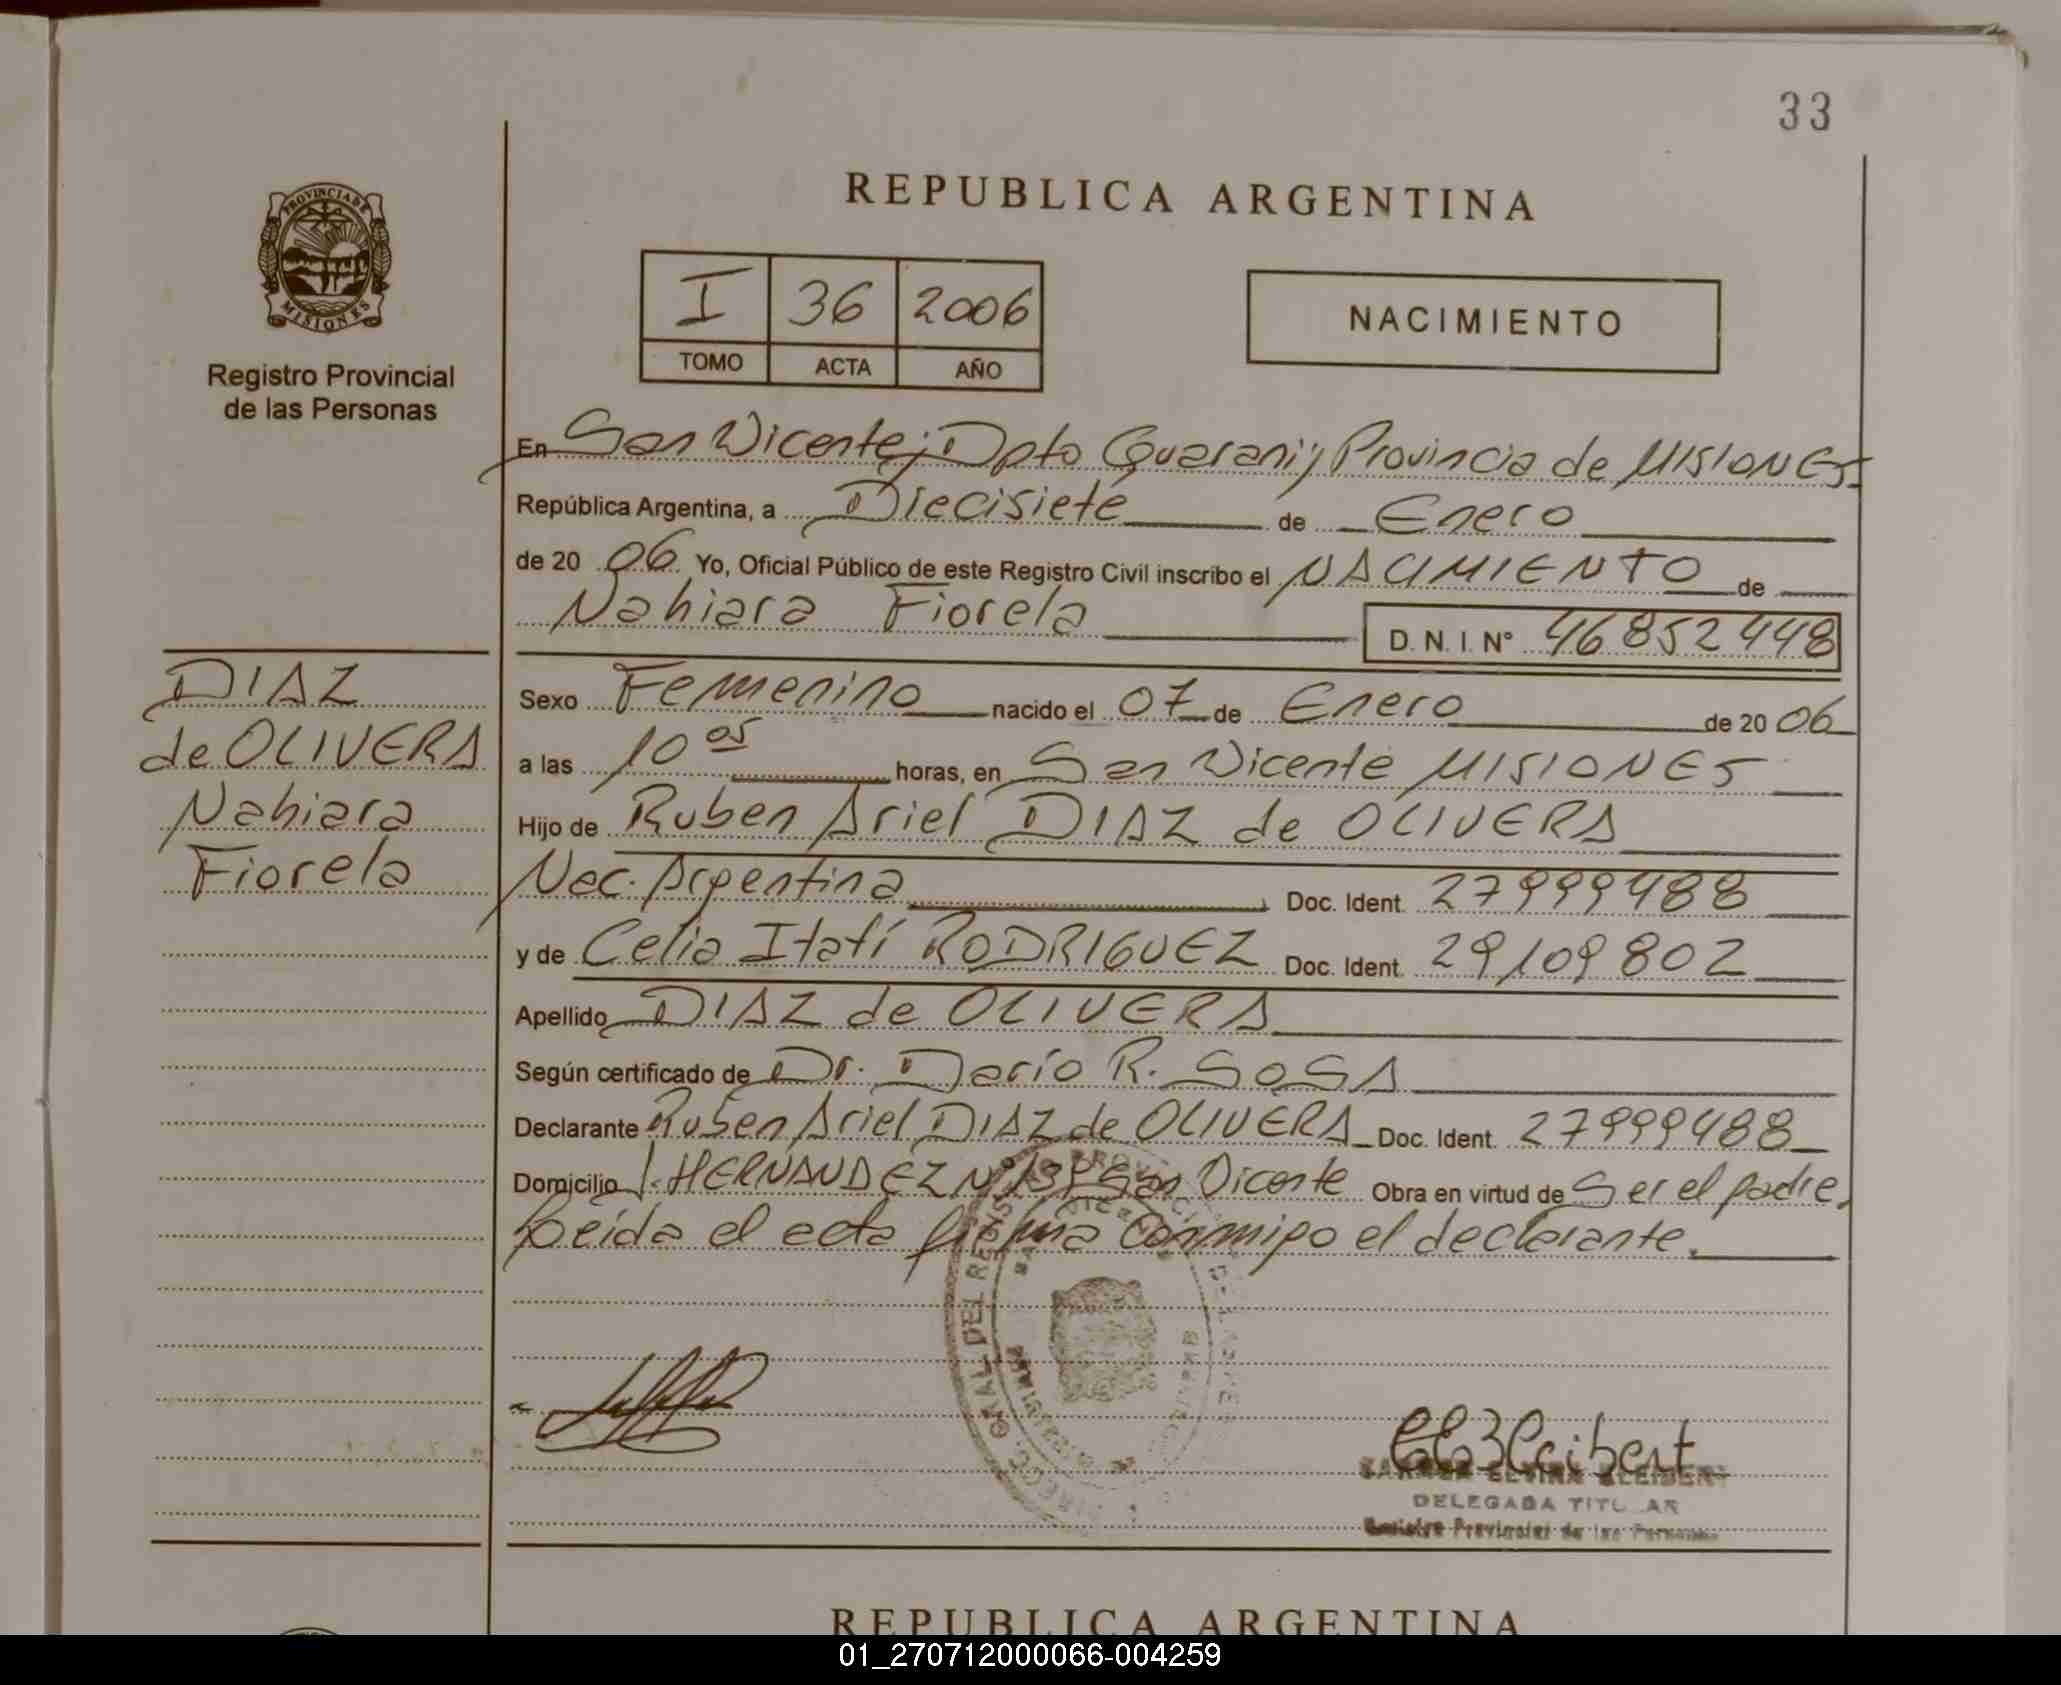 33
REPUBLICA ARGENTINA
PROVINCIA DE
MISIONES
Registro Provincial
de las Personas
I 36 2006
TOMO ACTA AÑO
NACIMIENTO
En San Vicente; Dpto Guaraní; Provincia de MISIONES
República Argentina, a Diecisiete de Enero
de 20 06 Yo, Oficial Público de este Registro Civil inscribo el NACIMIENTO de
Nahiara Fiorela D. N. I. N° 46852448
DIAZ
de OLIVERA
Nahiara
Fiorela
Sexo Femenino nacido el 07 de Enero de 20 06
a las 10 05 horas, en San Vicente MISIONES
Hijo de Ruben Ariel DIAZ de OLIVERA
Nac. Argentina Doc. Ident. 27999488
y de Celia Itatí RODRIGUEZ Doc. Ident. 29109802
Apellido DIAZ de OLIVERA
Según certificado de Dr. Darío R. SOSA
Declarante Ruben Ariel DIAZ de OLIVERA Doc. Ident. 27999488
Domicilio J. HERNANDEZ San Vicente Obra en virtud de Ser el padre,
Leída el acta firma conmigo el declarante.
DELEGADA TITULAR
Registro Provincial de las Personas
REPUBLICA ARGENTINA
01_270712000066-004259